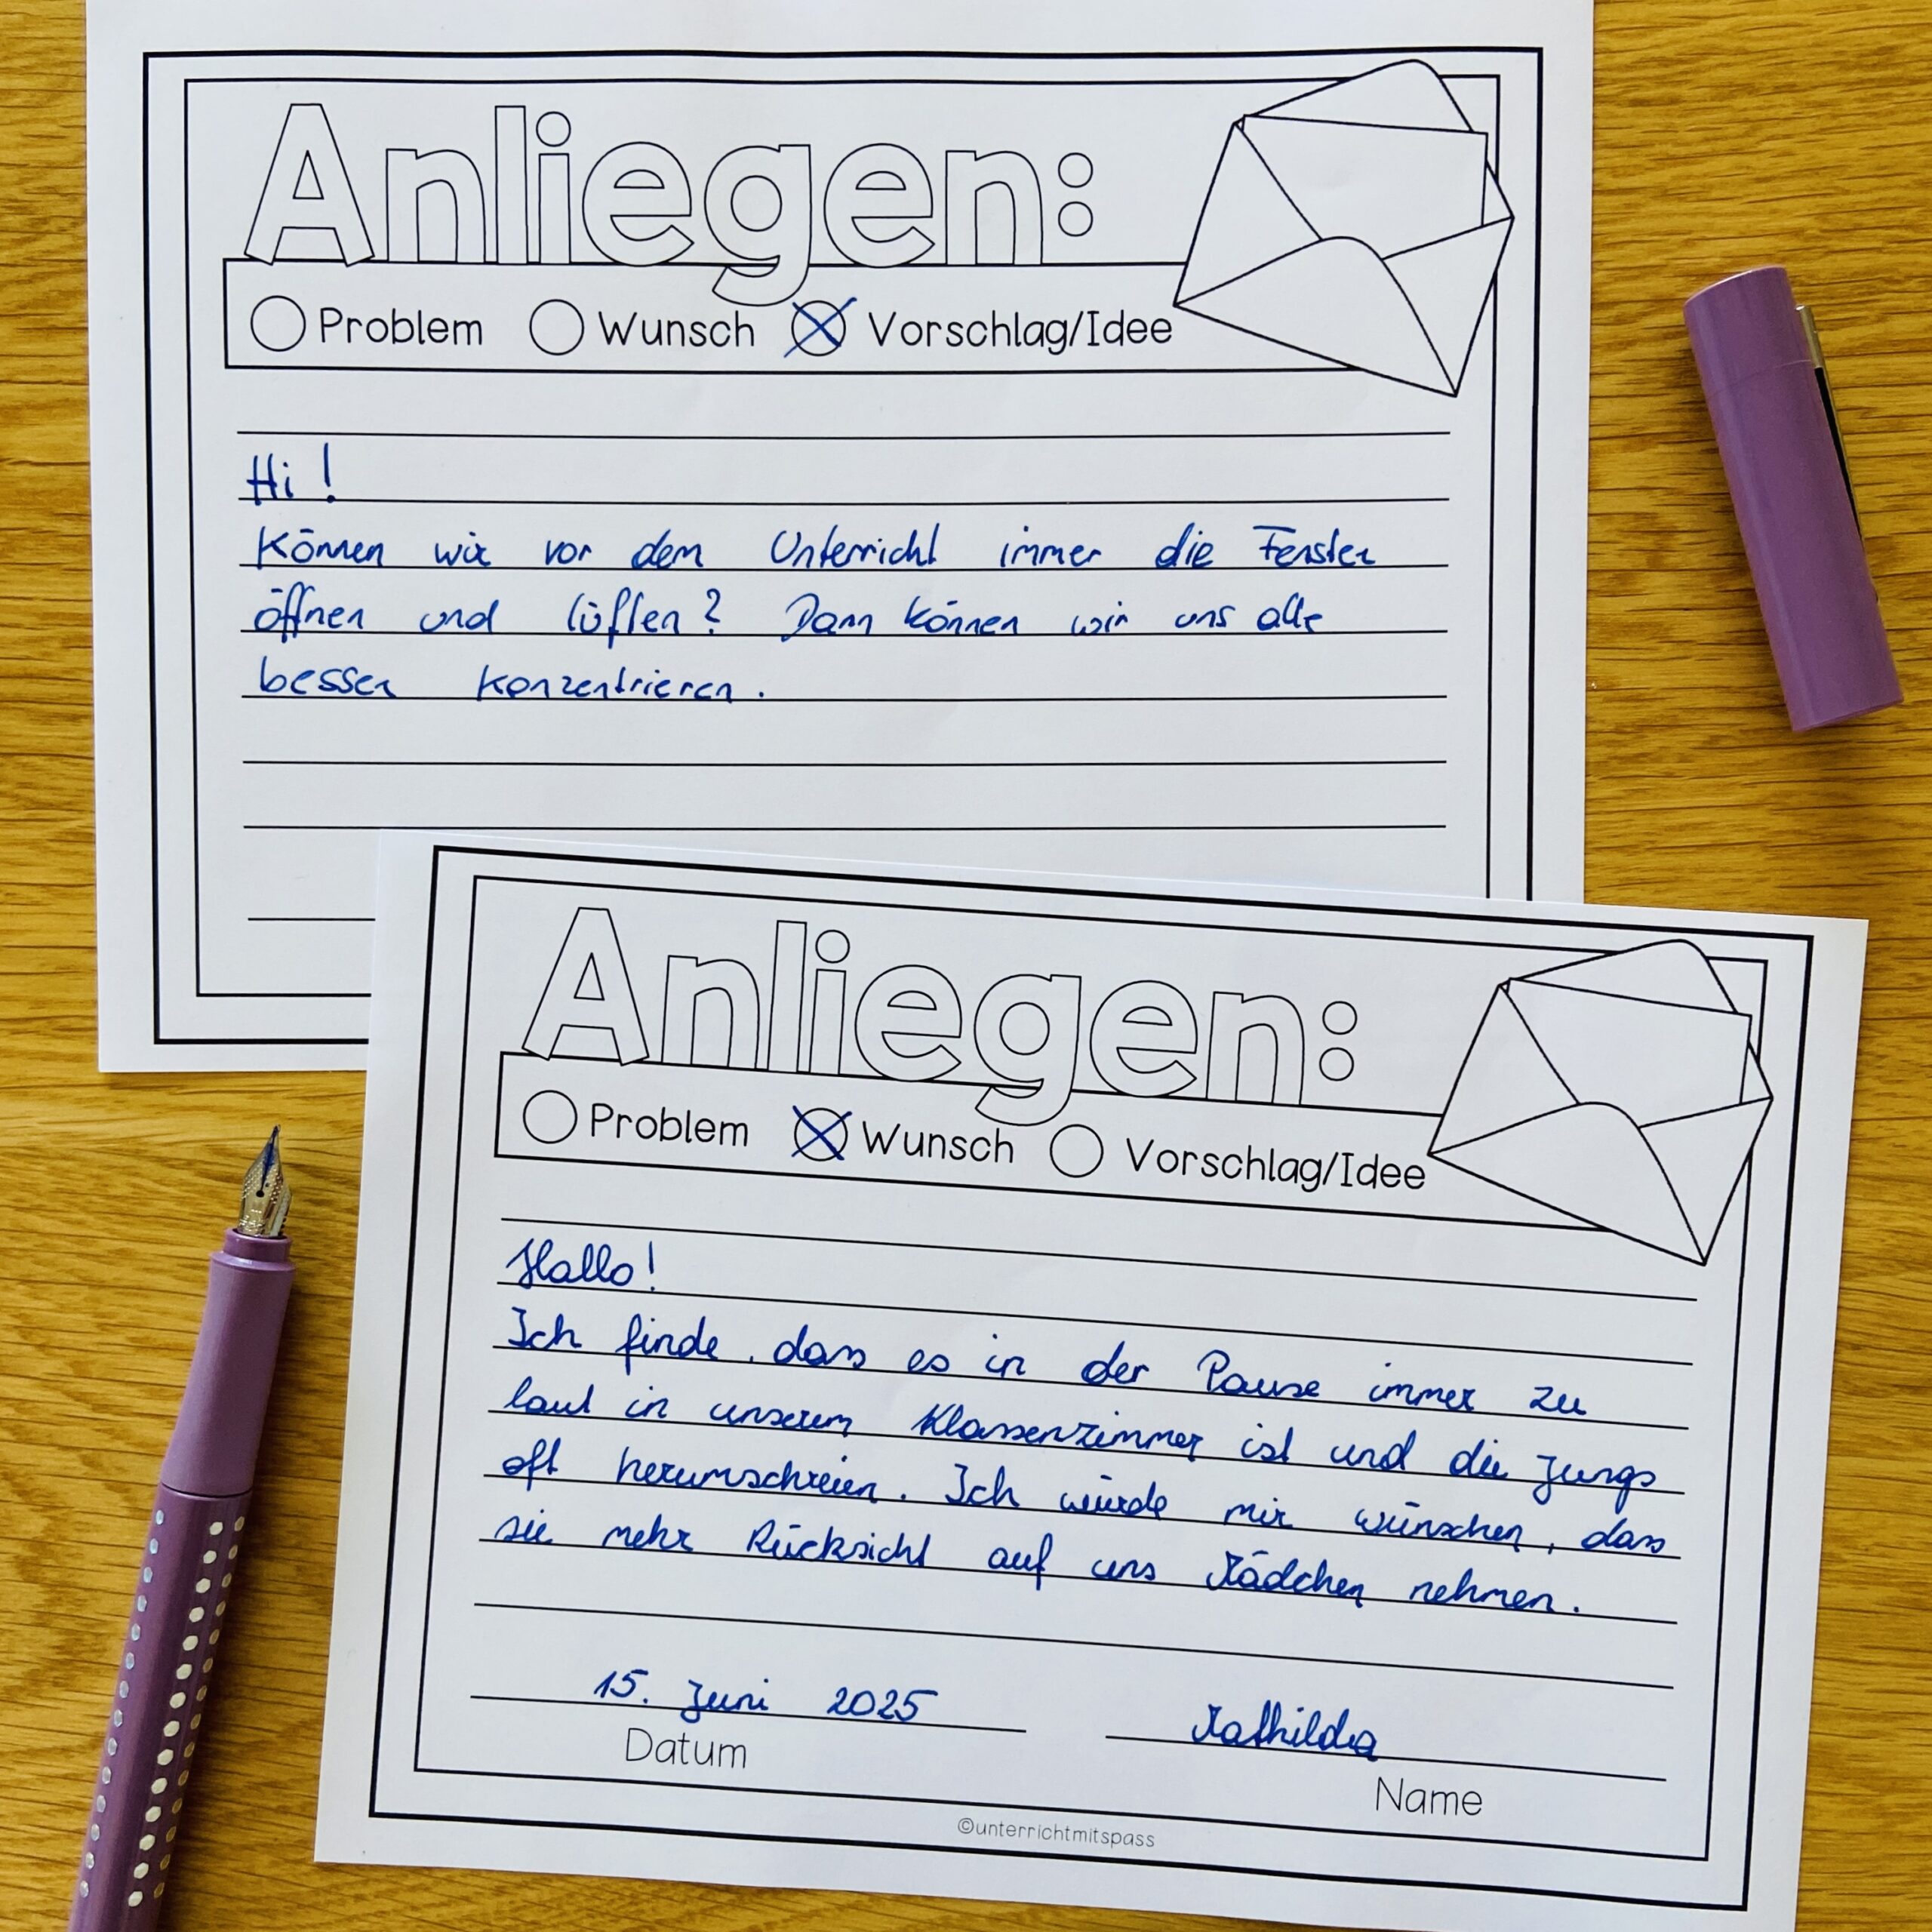 Anliegen:
Problem Wunsch Vorschlag/Idee
Hi !
Können wir vor dem Unterricht immer die Fenster
öffnen und lüften? Dann können wir uns alle
besser konzentrieren.
Anliegen:
Problem Wunsch Vorschlag/Idee
Hallo!
Ich finde, dass es in der Pause immer zu
laut in unserem Klassenzimmer ist und die Jungs
oft herumschreien. Ich würde mir wünschen, dass
sie mehr Rücksicht auf uns Mädchen nehmen.
15. Juni 2025 Mathilda
Datum Name
©unterrichtmitspass